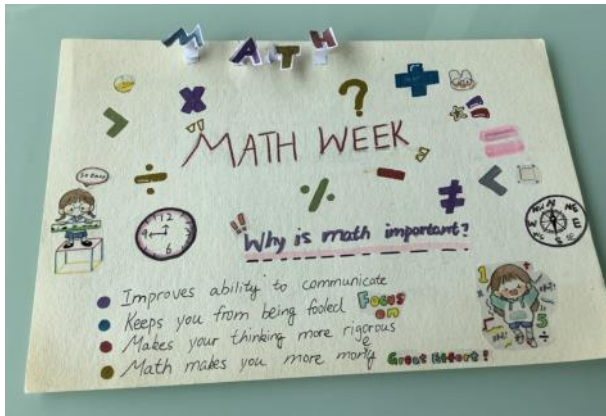 MATH
MATH WEEK
So Easy
12
9
6
Why is math important?
Improves ability to communicate
Keeps you from being fooled
Focus
on
Makes your thinking more rigorous
Math makes you more money
Great Effort!
1
5